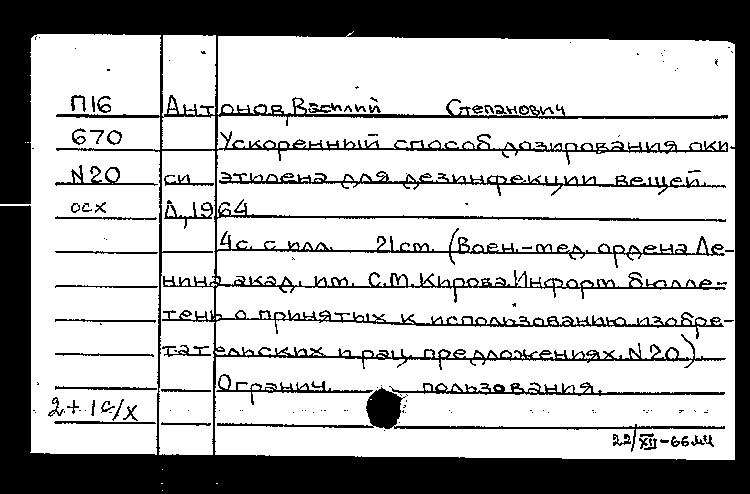 П16 Антонов, Василий Степанович
670 Ускоренный способ дозирования оки-
N20 си этилена для дезинфекции вещей.
осх Л., 1964.
4с. с илл. 21см. (Воен.-мед. ордена Ле-
нина акад. им. С.М. Кирова. Информ. бюлле-
тень о принятых к использованию изобре-
тательских и рац. предложениях. N20).
Огранич. пользования.
2+1с/х
22/XII-66мц